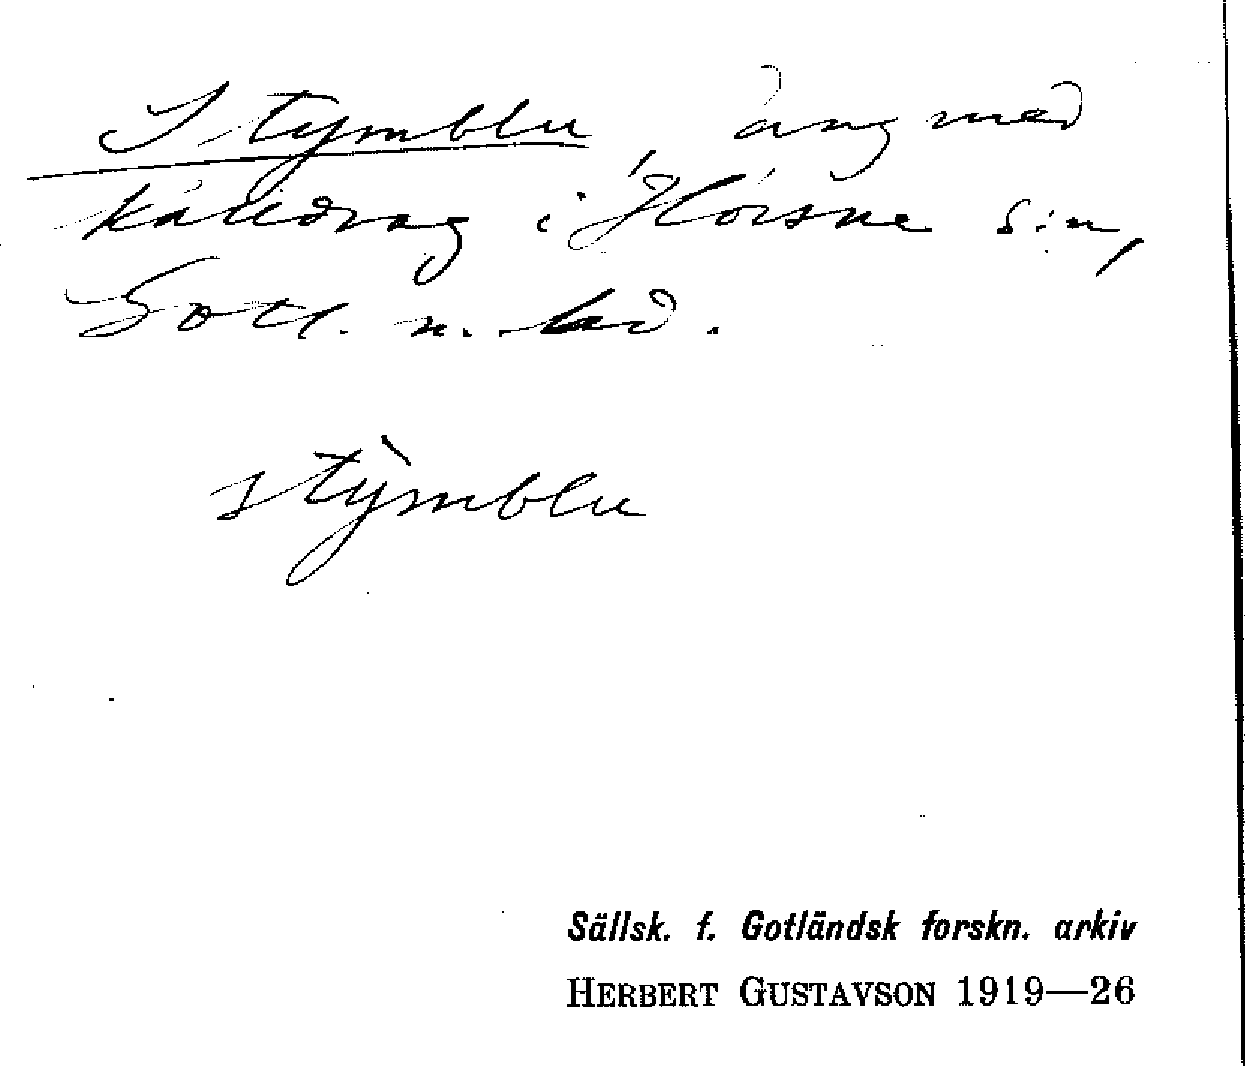 Stymblu äng med
källdrag i Hörsne s:n,
Gotl. n. hd.
stỳmblu
Sällsk. f. Gotländsk forskn. arkiv
HERBERT GUSTAVSON 1919—26